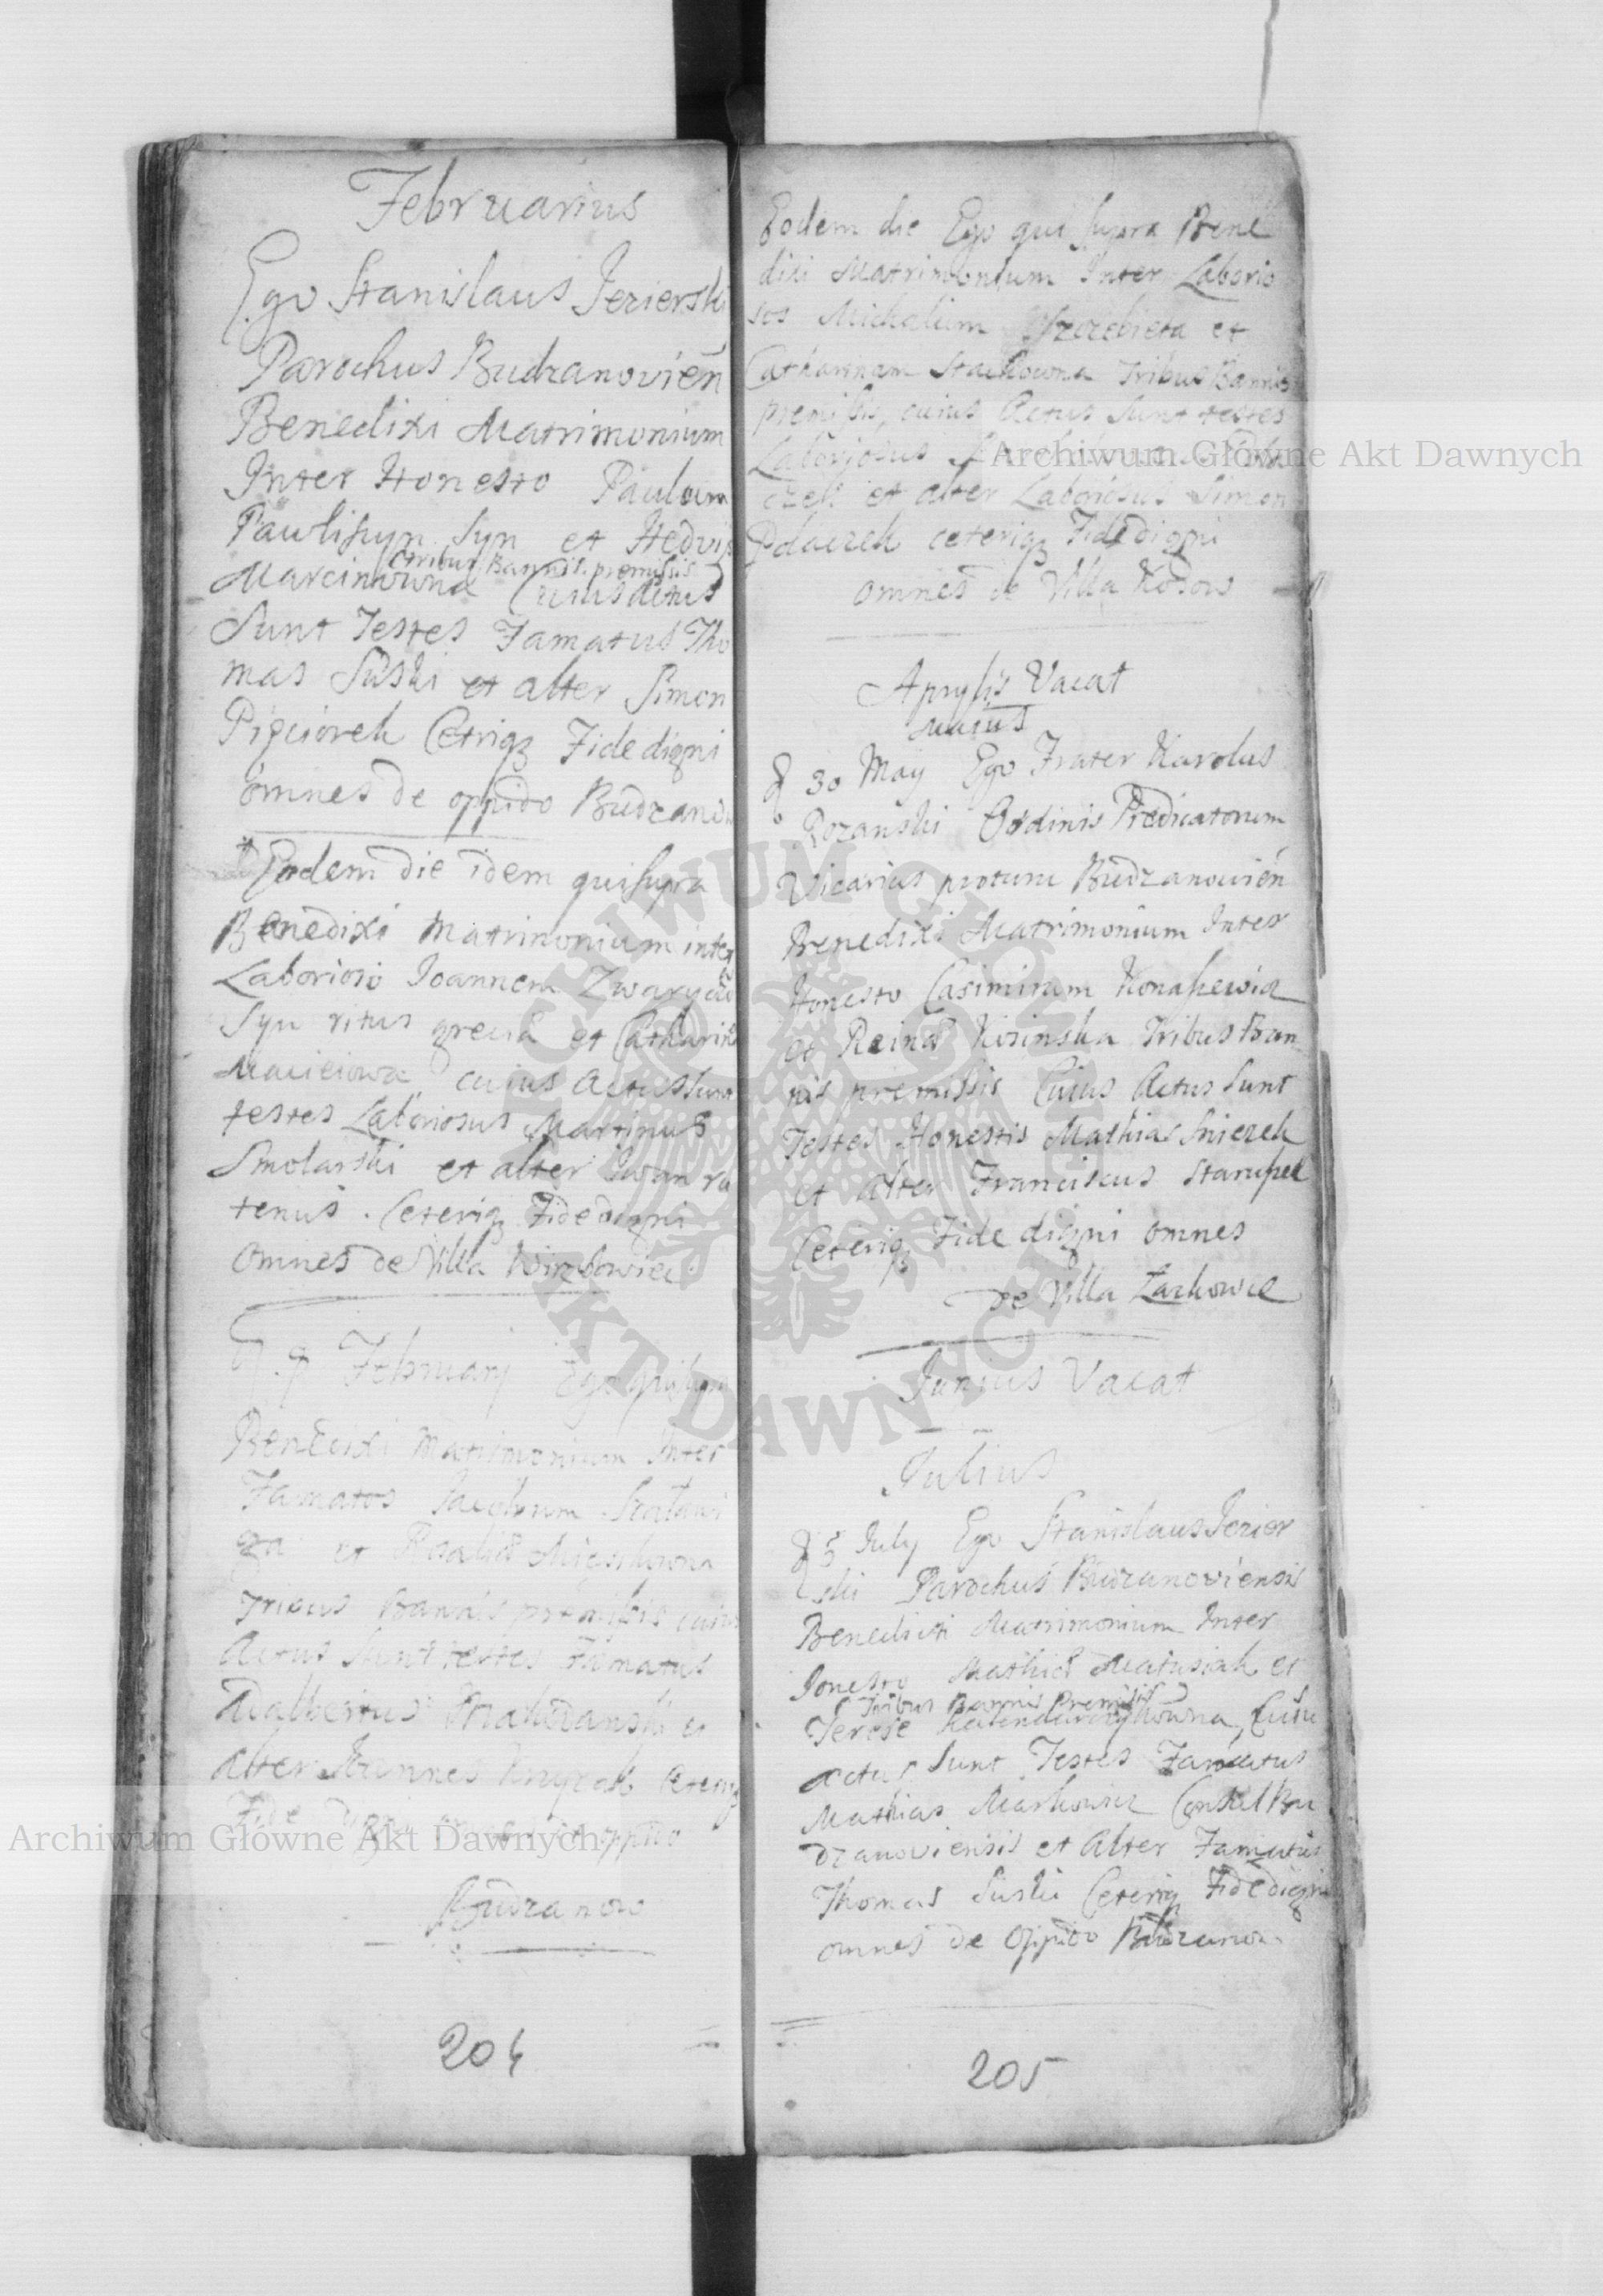 Februarius
Ego Stanislaus Jezierski
Parochus Budzanovień
Benedixi Matrimonium
Inter Honesto Paulum
Pawlisyn Syn et Hedvig
(tribus Bannis premissis)
Marcinowna Cuius Actus
Sunt Testes Famatus Tho
mas Suski et alter Simon
Pięciorek Cetriqz Fide digni
omnes de oppido Budzanow
Eodem die idem qui supra
Benedixi Matrimonium inter
Laborioso Joannem
Syn ritus greci et Catharin
Macieiowa cuius Actus Sunt
testes Laboriosus Martinus
Smolarski et alter Iwan ru
tenus. Ceteriqz Fide digni
Omnes de Villa Wirzbowiec
9 February Ego qui supra
Benedixi Matrimonium Inter
Famatos Jacobum
et Rosalia
Tribus Bannis premissis cuius
Actus Sunt testes Famatus
Adalbertus et
alter Ceteriqz
Fide digni omnes de oppido
Budzanow
204
Eodem die Ego qui supra Bene
dixi Matrimonium Inter Laborio
sos Michalem et
Catharinam Stachowna Tribus Bannis
premissis, cuius Actus Sunt testes
Laboriosus
et alter Laboriosus Simon
Polaczek ceteriqz Fide digni
omnes de Villa Kosow
Aprylis Vacat
Maius
d 30 May Ego Frater Karolus
Rozanski Ordinis Predicatorum
Vicarius protunc Budzanowień
Benedixi Matrimonium Inter
Honesto Casimirum Konasewicz
et Reina Kosinska Tribus Ban
nis premissis Cuius Actus Sunt
Testes Honestis Mathias
et alter Franciscus
Ceteriqz Fide digni omnes
de Villa Laskowce
Junius Vacat
Julius
d 5 July Ego Stanislaus Jezier
ski Parochus Budzanoviensis
Benedixi Matrimonium Inter
Jonesto Mathia Matusiak et
(Tribus Bannis Premissis)
Terese Cuius
actus Sunt Testes Famatus
Mathias Markowicz Consul Bu
dzanoviensis et Alter Famatus
Thomas Suski Ceteriqz Fide digni
omnes de Oppido Budzanow
205
Archiwum Główne Akt Dawnych
Archiwum Główne Akt Dawnych
ARCHIWUM GŁÓWNE AKT DAWNYCH